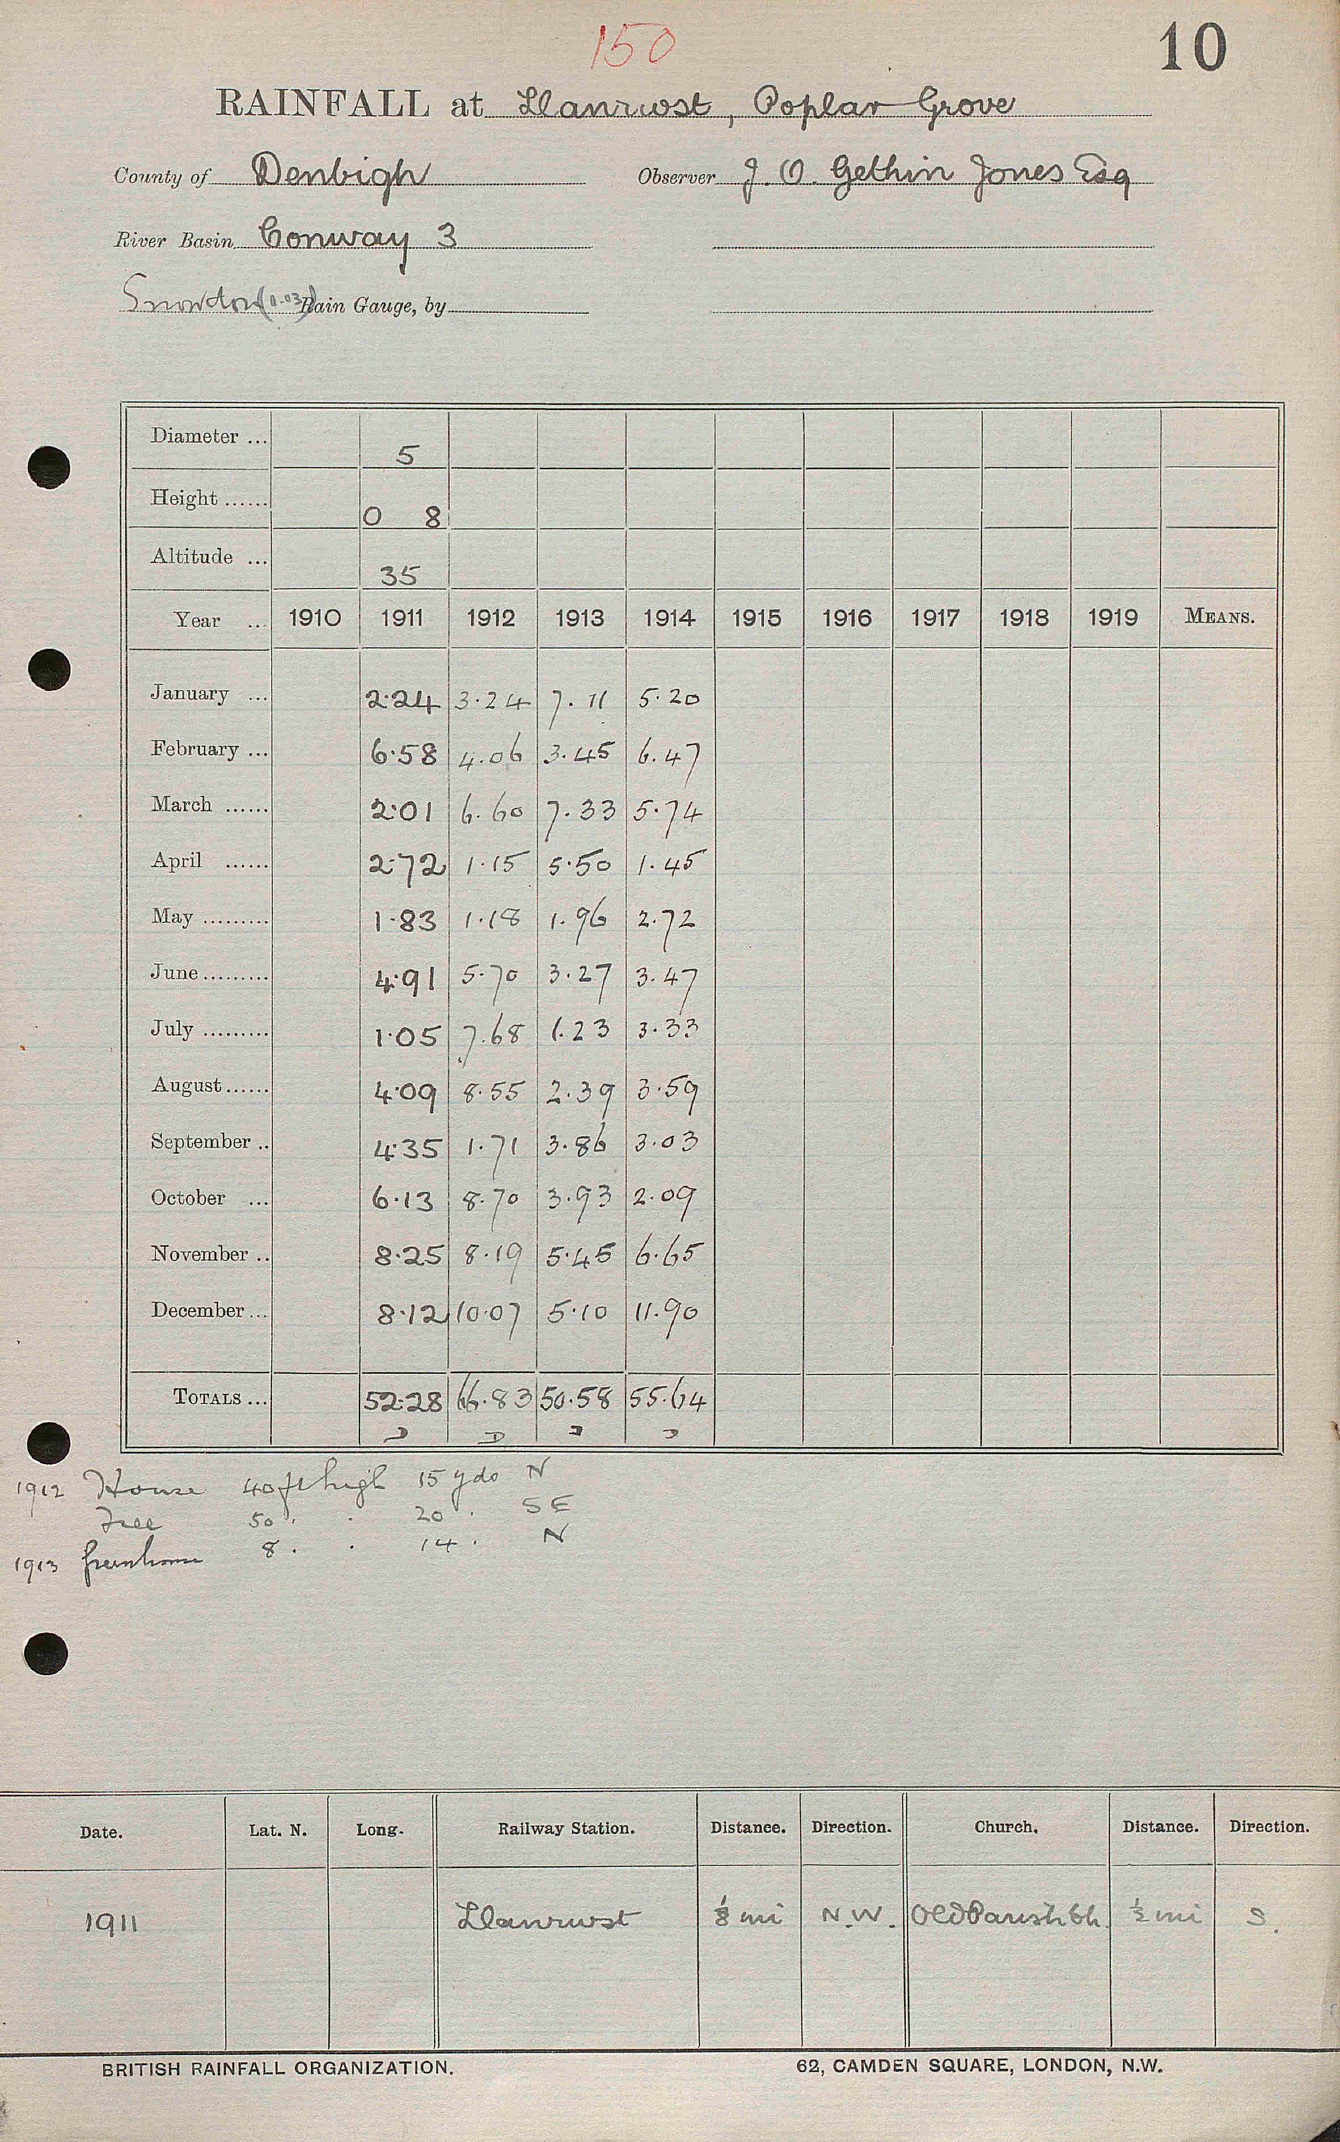 150
10
RAINFALL at Llanrwst, Poplar Grove
County of Denbigh Observer J. O. Gethin Jones Esq
River Basin Conway 3
Snowdon (1.03) Rain Gauge, by
Diameter ... 5
Height ...... 0 8
Altitude ... 35
Year ... 1910 1911 1912 1913 1914 1915 1916 1917 1918 1919 MEANS.
January ... 2.24 3.24 7.11 5.20
February ... 6.58 4.06 3.45 6.47
March ...... 2.01 6.60 7.33 5.74
April ...... 2.72 1.15 5.50 1.45
May ......... 1.83 1.18 1.96 2.72
June ......... 4.91 5.70 3.27 3.47
July ......... 1.05 7.68 1.23 3.33
August ...... 4.09 8.55 2.39 3.59
September .. 4.35 1.71 3.86 3.03
October ... 6.13 8.70 3.93 2.09
November .. 8.25 8.19 5.45 6.65
December ... 8.12 10.07 5.10 11.90
TOTALS ... 52.28 66.83 50.58 55.64
1912 House 40 ft high 15 yds N
Tree 50 " . 20 . SE
1913 Greenhouse 8 . . 14 . N
Date. Lat. N. Long. Railway Station. Distance. Direction. Church. Distance. Direction.
1911 Llanrwst ⅛ mi N.W. Old Parish Ch. ½ mi S.
BRITISH RAINFALL ORGANIZATION. 62, CAMDEN SQUARE, LONDON, N.W.